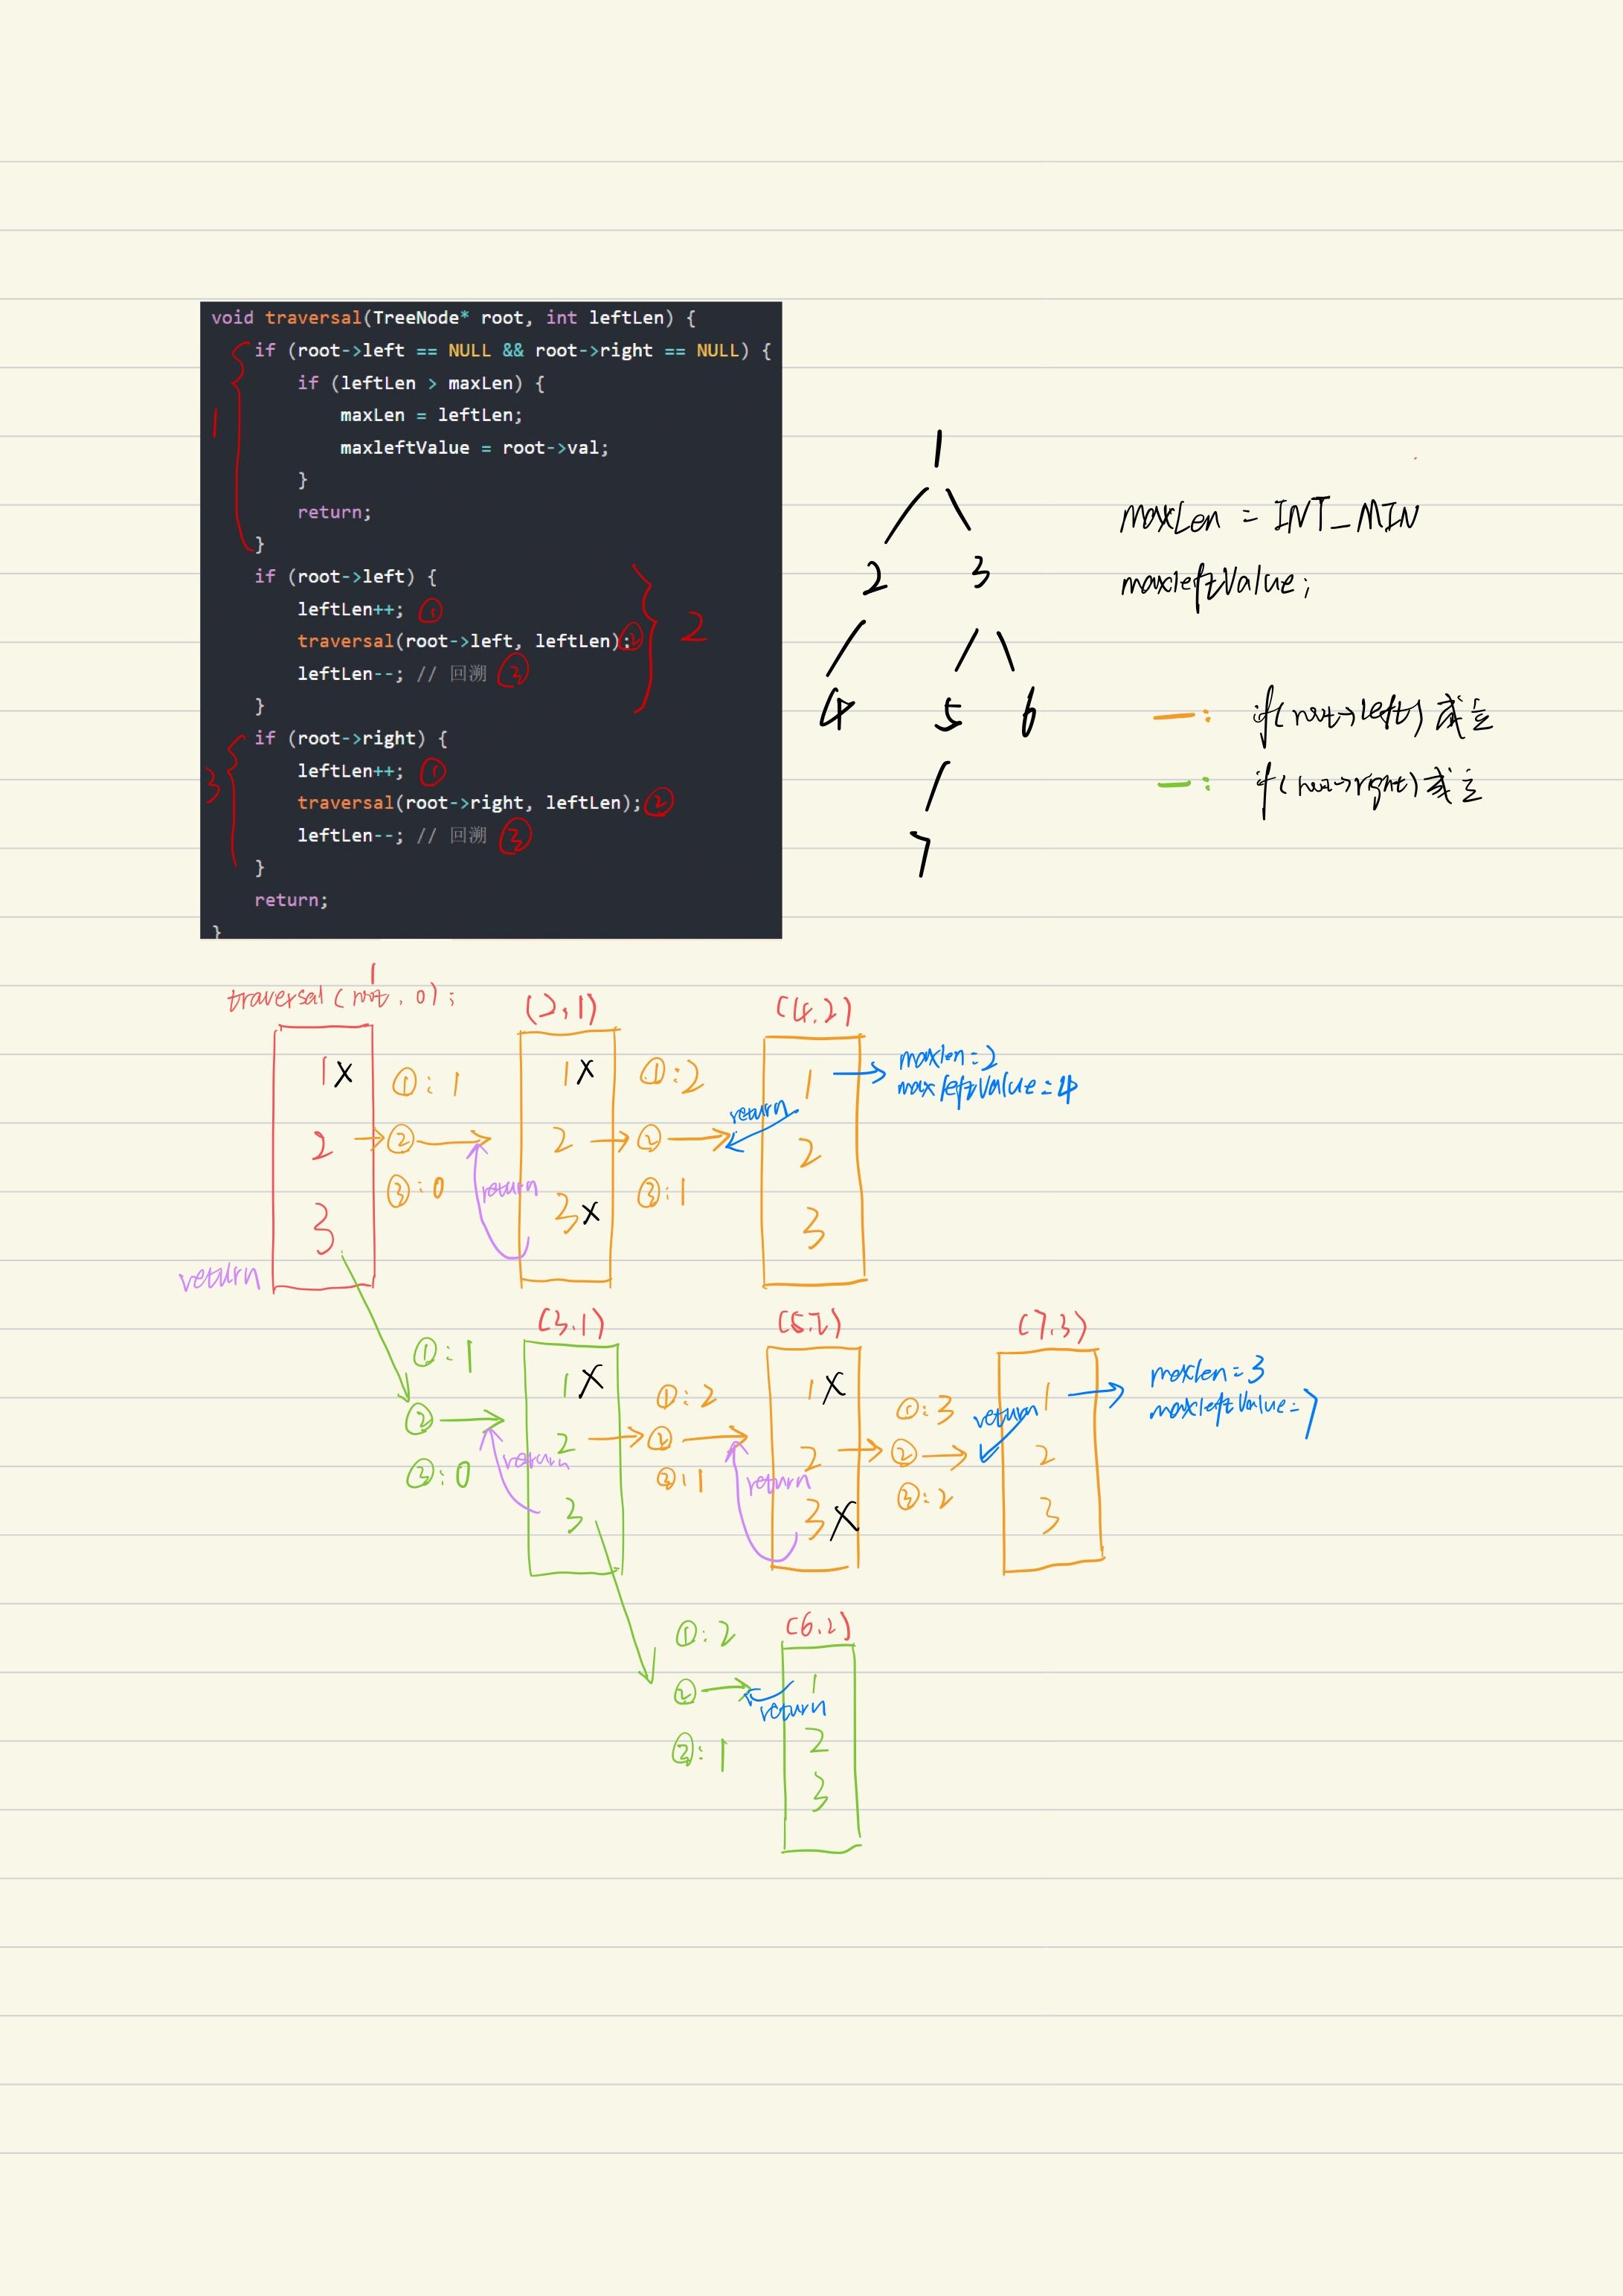 void traversal(TreeNode* root, int leftLen) {
if (root->left == NULL && root->right == NULL) {
if (leftLen > maxLen) {
maxLen = leftLen;
maxleftValue = root->val;
}
return;
}
1
if (root->left) {
leftLen++; ①
traversal(root->left, leftLen); ②
leftLen--; // 回溯 ③
}
2
if (root->right) {
leftLen++; ①
traversal(root->right, leftLen); ②
leftLen--; // 回溯 ③
}
3
return;
}
1
2 3
4 5 6
7
maxLen = INT_MIN
maxleftValue;
—: if(root->left) 成立
—: if(root->right) 成立
1
traversal(root, 0);
1 X
2
3
return
①: 1
②
③: 0
return
(2,1)
1 X
2
3 X
①: 2
②
③: 1
return
(4.2)
1
2
3
maxlen=2
maxleftValue=4
①: 1
②
③: 0
return
(3.1)
1 X
2
3
①: 2
②
③: 1
return
(5.2)
1 X
2
3 X
①: 3
②
③: 2
return
(7.3)
1
2
3
maxlen=3
maxleftValue=7
①: 2
②
③: 1
return
(6.2)
1
2
3